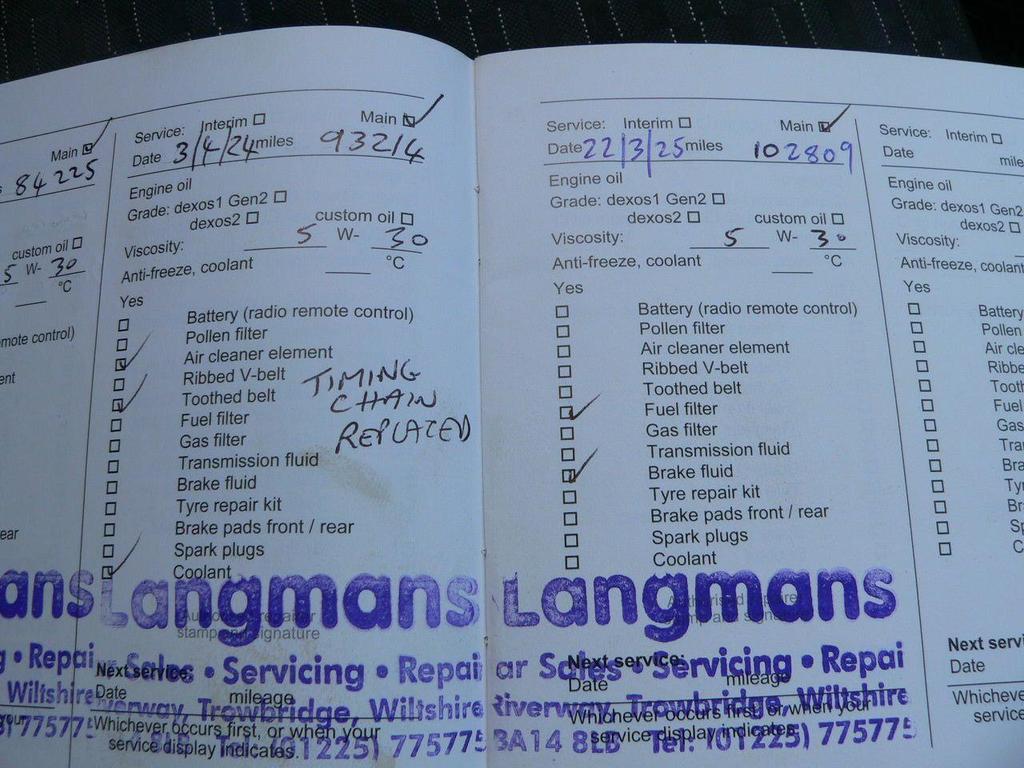 Main
84 225
custom oil
5 W- 30
°C
mote control)
ent
ear
ans
Repai
Wiltshire
77577
Service: Interim Main
Date 3/4/24 miles 93214
Engine oil
Grade: dexos1 Gen2
dexos2 custom oil
Viscosity: 5 W- 30
Anti-freeze, coolant °C
Yes
Battery (radio remote control)
Pollen filter
Air cleaner element
Ribbed V-belt
Toothed belt
Fuel filter
Gas filter
Transmission fluid
Brake fluid
Tyre repair kit
Brake pads front / rear
Spark plugs
Coolant
TIMING
CHAIN
REPLACED
Langmans
stamp and signature
Sales • Servicing • Repai
Next service:
Date mileage
Trowbridge, Wiltshire
Whichever occurs first, or when your
service display indicates.
Tel: (01225) 775775
Service: Interim Main
Date 22/3/25 miles 102809
Engine oil
Grade: dexos1 Gen2
dexos2 custom oil
Viscosity: 5 W- 30
Anti-freeze, coolant °C
Yes
Battery (radio remote control)
Pollen filter
Air cleaner element
Ribbed V-belt
Toothed belt
Fuel filter
Gas filter
Transmission fluid
Brake fluid
Tyre repair kit
Brake pads front / rear
Spark plugs
Coolant
Langmans
ar Sales • Servicing • Repai
Next service:
Date mileage
Riverway, Trowbridge, Wiltshire
Whichever occurs first, or when your
service display indicates.
BA14 8LB Tel: (01225) 775775
Service: Interim
Date mile
Engine oil
Grade: dexos1 Gen2
dexos2
Viscosity:
Anti-freeze, coolant
Yes
Battery
Pollen
Air cle
Ribbe
Tooth
Fuel
Gas
Tra
Bra
Ty
Br
Sp
C
Next servi
Date
Whicheve
service